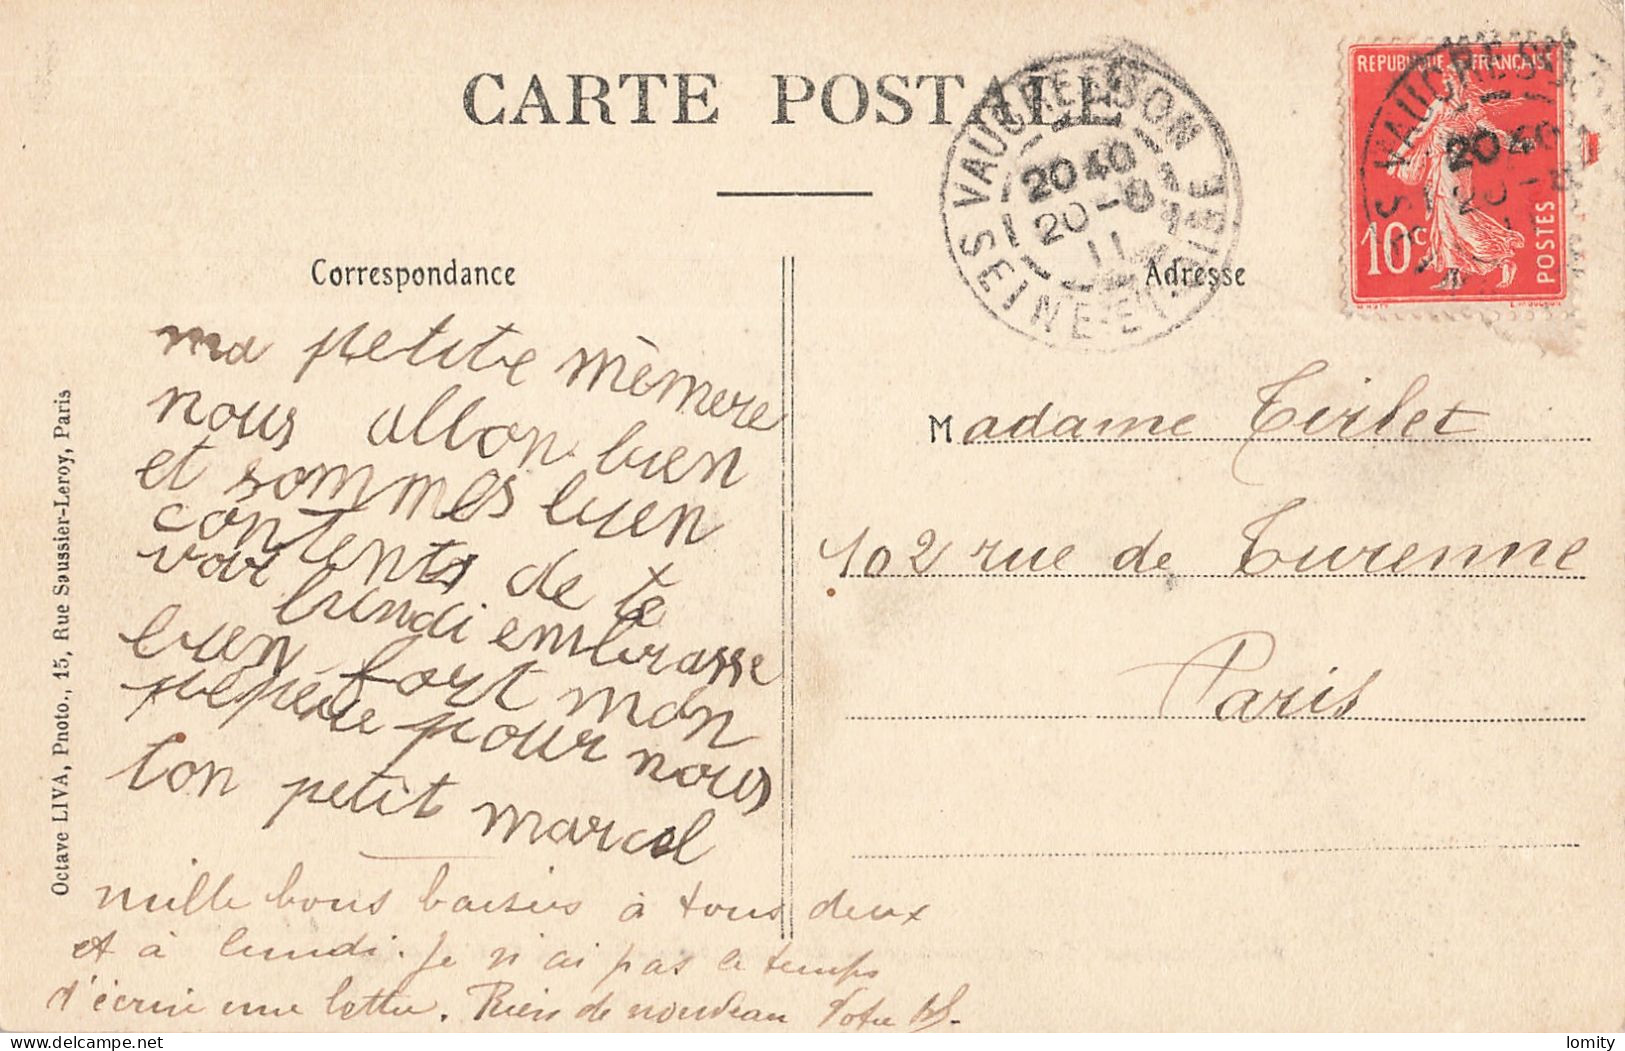 CARTE POSTALE
VAUCRESSON
2040
20-8
11
SEINE-ET-OISE
REPUBLIQUE FRANÇAISE
VAUCRESSON
2040
20
10c
POSTES
Correspondance
Adresse
ma petite mèmere
nous allon bien
et sommes bien
contents de te
voir lundi embrasse
bien fort mon
pepère pour nous
ton petit marcel
mille bons baisers à tous deux
et à lundi. Je n'ai pas le temps
d'écrire une lettre. Rien de nouveau Votre
Madame Tirlet
102 rue de Turenne
Paris
Octave LIVA, Photo., 15, Rue Saussier-Leroy, Paris
lomity